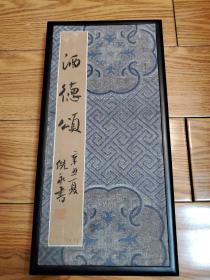 酒德頌
辛丑夏
倪永書